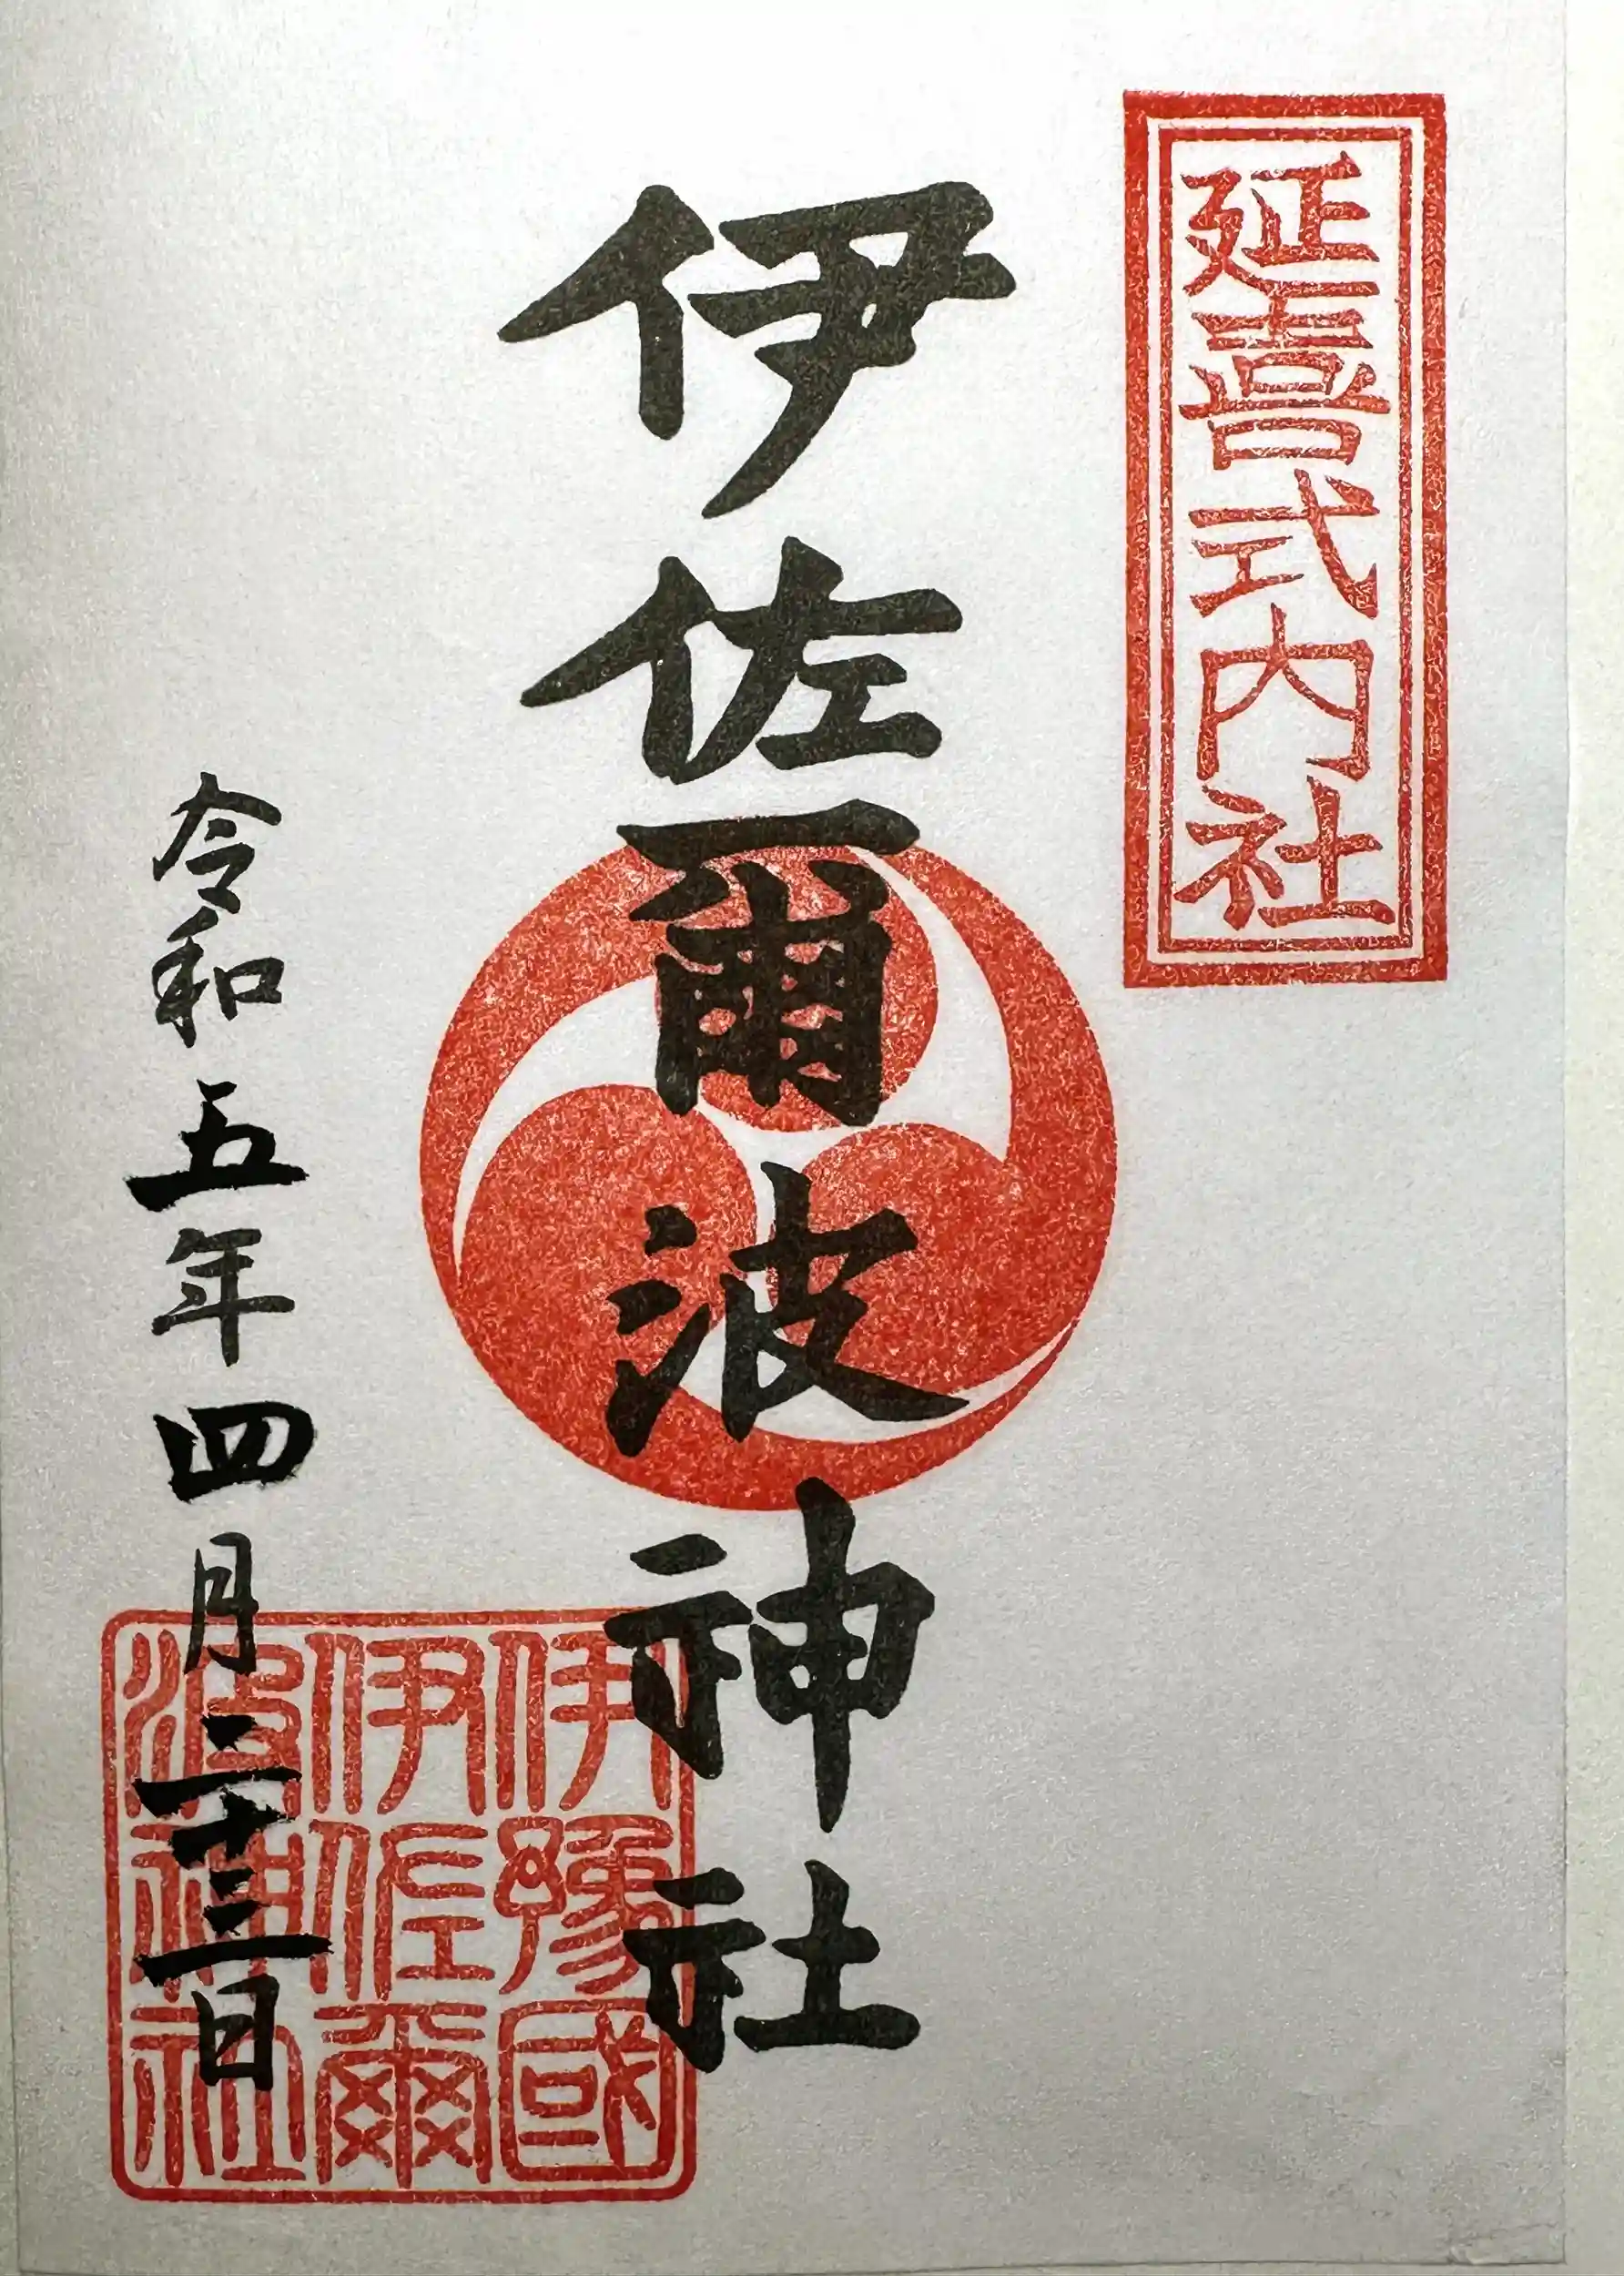 延喜式内社
伊佐爾波神社
令和五年四月二十三日
伊豫國
伊佐爾
波神社